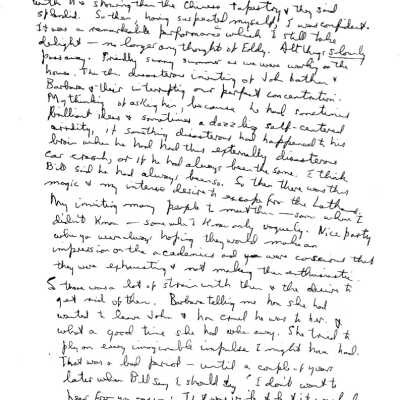 with it & showing them the Chinese tapestry & they said
splendid. So then, having suspected myself, I was confident.
It was a remarkable performance which I still take
delight — no longer any thought of Eddy. All things slowly
pass away. Finally sunny summer as we were working on the
house. The the disastrous inviting of John Latham &
Barbara & their interrupting our perfect concentration.
My thinking of asking her, because he had sometimes
brilliant ideas & sometimes a dazzling self-centered
, if something disastrous had happened to his
brain when he had had this externally disastrous
car crash, or if he had always been the same. I think
Bill said he had always been so. So then there was this
magic & my intense desire to escape for the Lathams,
My inviting many people to meet them — some whom I
didn't know — some whom I knew only vaguely. Nice party
when you were always hoping they would make an
impression on the academics and you were conscious that
they were exhausting & not making them enthusiastic.
So there was a lot of strain with them & the desire to
get rid of them. Barbara telling me how she had
wanted to leave John & how cruel he was to her. &
what a good time she had when away. She tried to
play on every imaginable impulse I might have had.
That was a bad period — until a couple of years
later when Bill say I should say "I don't want to
hear from you